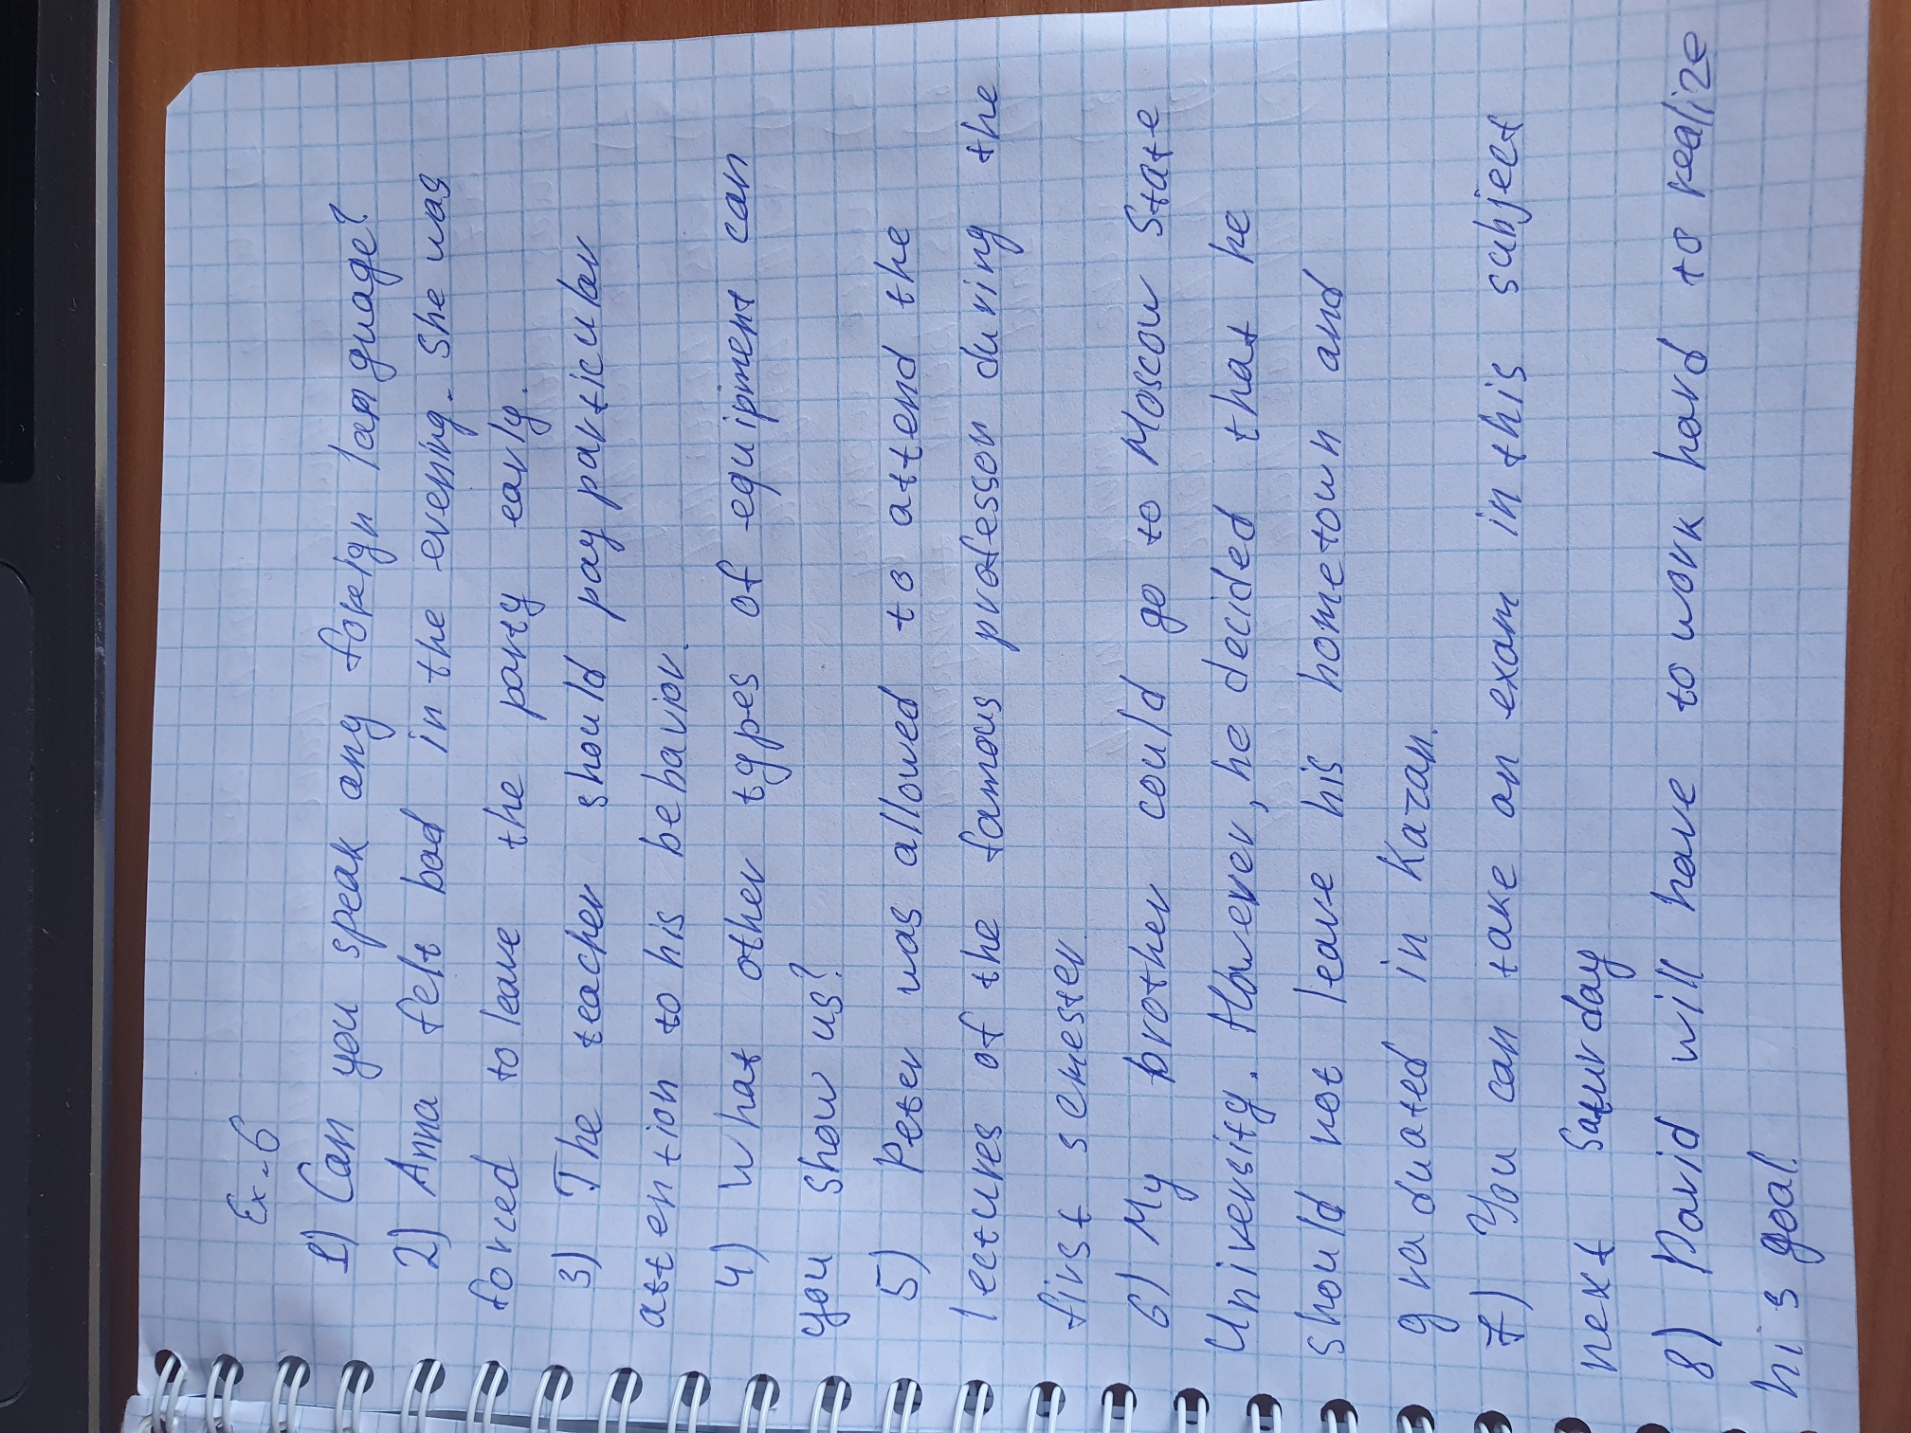 Ex-6
1) Can you speak any foreign language?
2) Anna felt bad in the evening. She was
forced to leave the party early.
3) The teacher should pay particular
attention to his behavior.
4) What other types of equipment can
you show us?
5) Peter was allowed to attend the
lectures of the famous professor during the
first semester.
6) My brother could go to Moscow State
University. However, he decided that he
should not leave his hometown and
graduated in Kazan.
7) You can take an exam in this subject
next Saturday
8) David will have to work hard to realize
his goal.